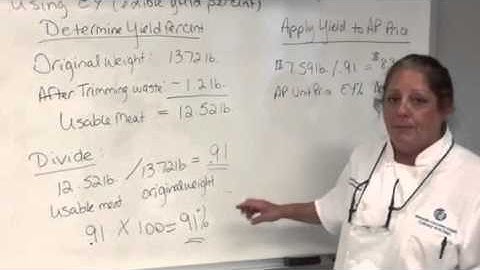 Using EY (edible yield percent)
Determine Yield Percent
Original Weight: 13.72lb.
After Trimming waste: -1.2lb.
Usable Meat = 12.52lb.
Divide:
12.52lb / 13.72lb = .91
usable meat original weight
.91 X 100 = 91%
Apply Yield to AP Price
$7.59lb. / .91 = $8.3
AP Unit Price EY%